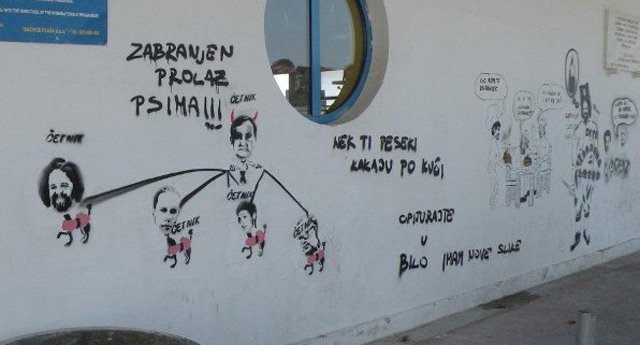 ZABRANJEN
PROLAZ
PSIMA!!!
ČETNIK
ČETNIK
ČETNIK
ČETNIK
ČETNIK
NEK TI PESEKI
KAKAJU PO KUĆI
OPITURAJTE
U
BILO IMAM NOVE SLIKE